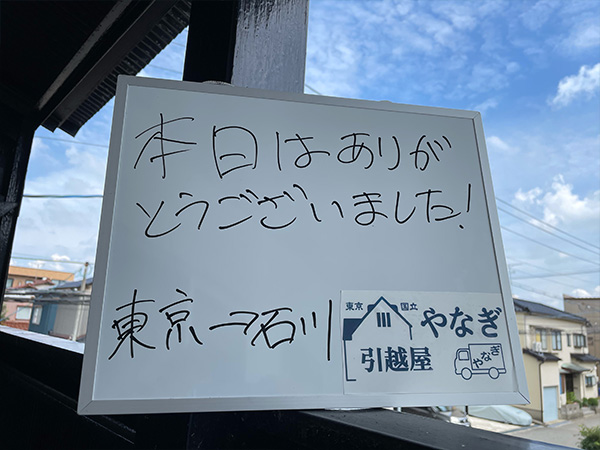 本日はありが
とうございました!
東京→石川
東京 国立
やなぎ
引越屋
やなぎ